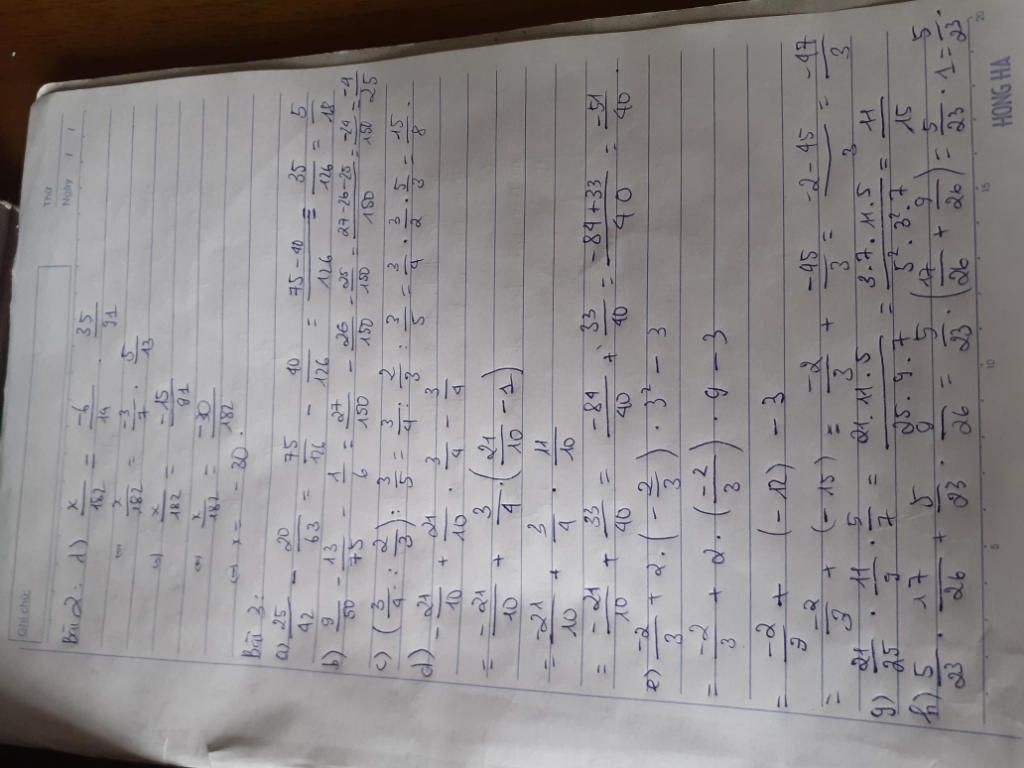 Ghi chú:
Thứ
Ngày / /
Bài 2: 1) x/182 = -6/14 . 35/91
⇔ x/182 = -3/7 . 5/13
⇔ x/182 = -15/91
⇔ x/182 = -30/182
⇔ x = -30.
Bài 3:
a) 25/42 - 20/63 = 75/126 - 40/126 = 75-40/126 = 35/126 = 5/18
b) 9/50 - 13/75 - 1/6 = 27/150 - 26/150 - 25/150 = 27-26-25/150 = -24/150 = -4/25
c) (3/4 : 2/3) : 3/5 = 3/4 . 2/3 : 3/5 = 3/4 . 3/2 . 5/3 = 15/8.
d) -21/10 + 21/10 . 3/4 - 3/4
= -21/10 + 3/4 (21/10 - 1)
= -21/10 + 3/4 . 11/10
= -21/10 + 33/40 = -84/40 + 33/40 = -84+33/40 = -51/40.
e) -2/3 + 2 . (-2/3) . 3² - 3
= -2/3 + 2 . (-2/3) . 9 - 3
= -2/3 + (-12) - 3
= -2/3 + (-15) = -2/3 + -45/3 = -2-45/3 = -47/3
g) 21/25 . 11/9 . 5/7 = 21.11.5/25.9.7 = 3.7.11.5/5².3².7 = 11/15
h) 5/23 . 17/26 + 5/23 . 9/26 = 5/23 . (17/26 + 9/26) = 5/23 . 1 = 5/23.
5 10 15 20
HONG HA